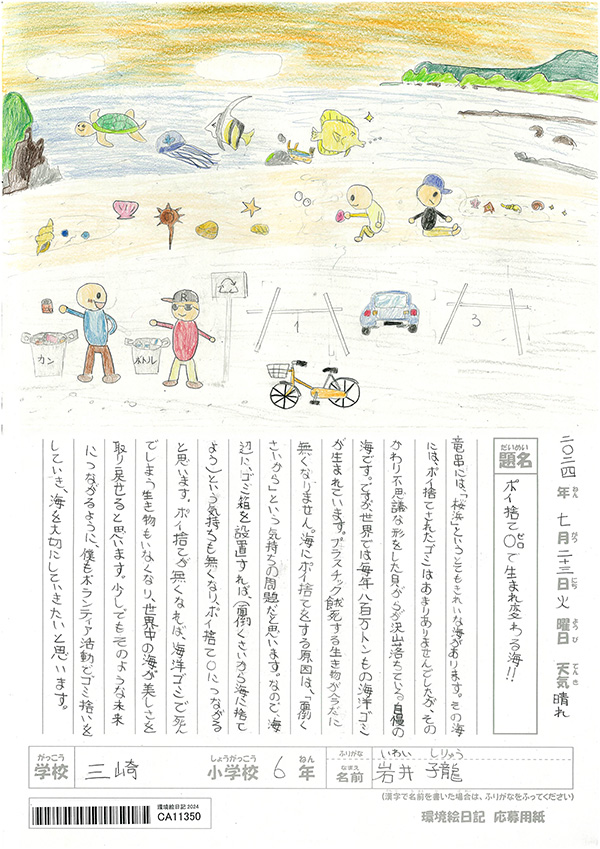 カン
ボトル
R
1
3
二〇二四年 七月 二十三日 火曜日 天気 晴れ
ねん がつ にち ようび てんき
だいめい
題名
ポイ捨て〇で生まれ変わる海!!
ゼロ
竜串には、「桜浜」というとてもきれいな海があります。その海
には、ポイ捨てされたゴミはあまりありませんでしたが、その
かわり不思議な形をした貝がらが沢山落ちている。自慢の
海です。ですが、世界では毎年八百万トンもの海洋ゴミ
が生まれています。プラスチック餓死する生き物が今だに
無くなりません。海にポイ捨てをする原因は、「面倒く
さいから」という気持ちの問題だと思います。なので、海
辺に、ゴミ箱を設置すれば、(面倒くさいから海に捨て
よう)という気持ちも無くなり、ポイ捨て〇につながる
と思います。ポイ捨てが無くなれば、海洋ゴミで死ん
でしまう生き物もいなくなり、世界中の海が美しさを
取り戻せると思います。少しでもそのような未来
につながるように、僕もボランティア活動でゴミ捨いを
していき、海を大切にしていきたいと思います。
がっこう しょうがっこう ねん ふりがな いわい しりゅう
学校 三崎 小学校 6年 なまえ 名前 岩井 子龍
(漢字で名前を書いた場合は、ふりがなをふってください)
環境絵日記 2024
CA11350
環境絵日記 応募用紙